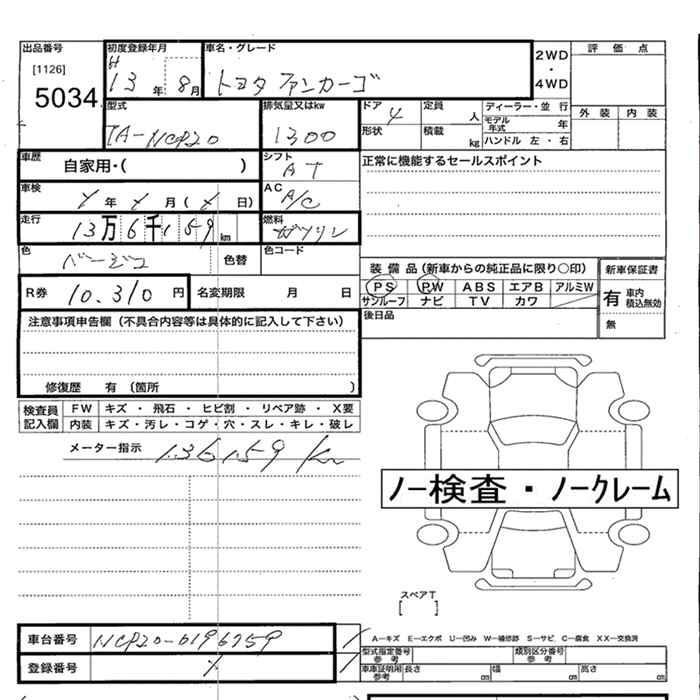 出品番号 初度登録年月 車名・グレード 2WD・4WD 評価点
[1126] H 13年 8月 トヨタ ファンカーゴ
5034
型式 排気量又はkw ドア 4 定員 人 ディーラー・並行 外装 内装
TA-NCP20 1300 モデル年式 年
形状 積載 kg ハンドル 左・右
車歴 自家用・( ) シフト AT 正常に機能するセールスポイント
車検 年 月( 日) AC A/C
走行 13万6千159km 燃料 ガソリン
色 ベージュ 色替 色コード
装備品(新車からの純正品に限り〇印) 新車保証書
R券 10.310円 名変期限 月 日 PS PW ABS エアB アルミW 有 車内積込無効
サンルーフ ナビ TV カワ 無
注意事項申告欄(不具合内容等は具体的に記入して下さい) 後日品
修復歴 有(箇所 )
検査員記入欄 FW キズ・飛石・ヒビ割・リペア跡・X要
内装 キズ・汚レ・コゲ・穴・スレ・キレ・破レ
メーター指示 136159km
ノー検査・ノークレーム
スペアT
[ ]
車台番号 NCP20-0196759 A-キズ E-エクボ U-凹み W-補修跡 S-サビ C-腐食 XX-交換済
型式指定番号参考 類別区分番号参考
登録番号 車車証明用参考 長さ cm 幅 cm 高さ cm